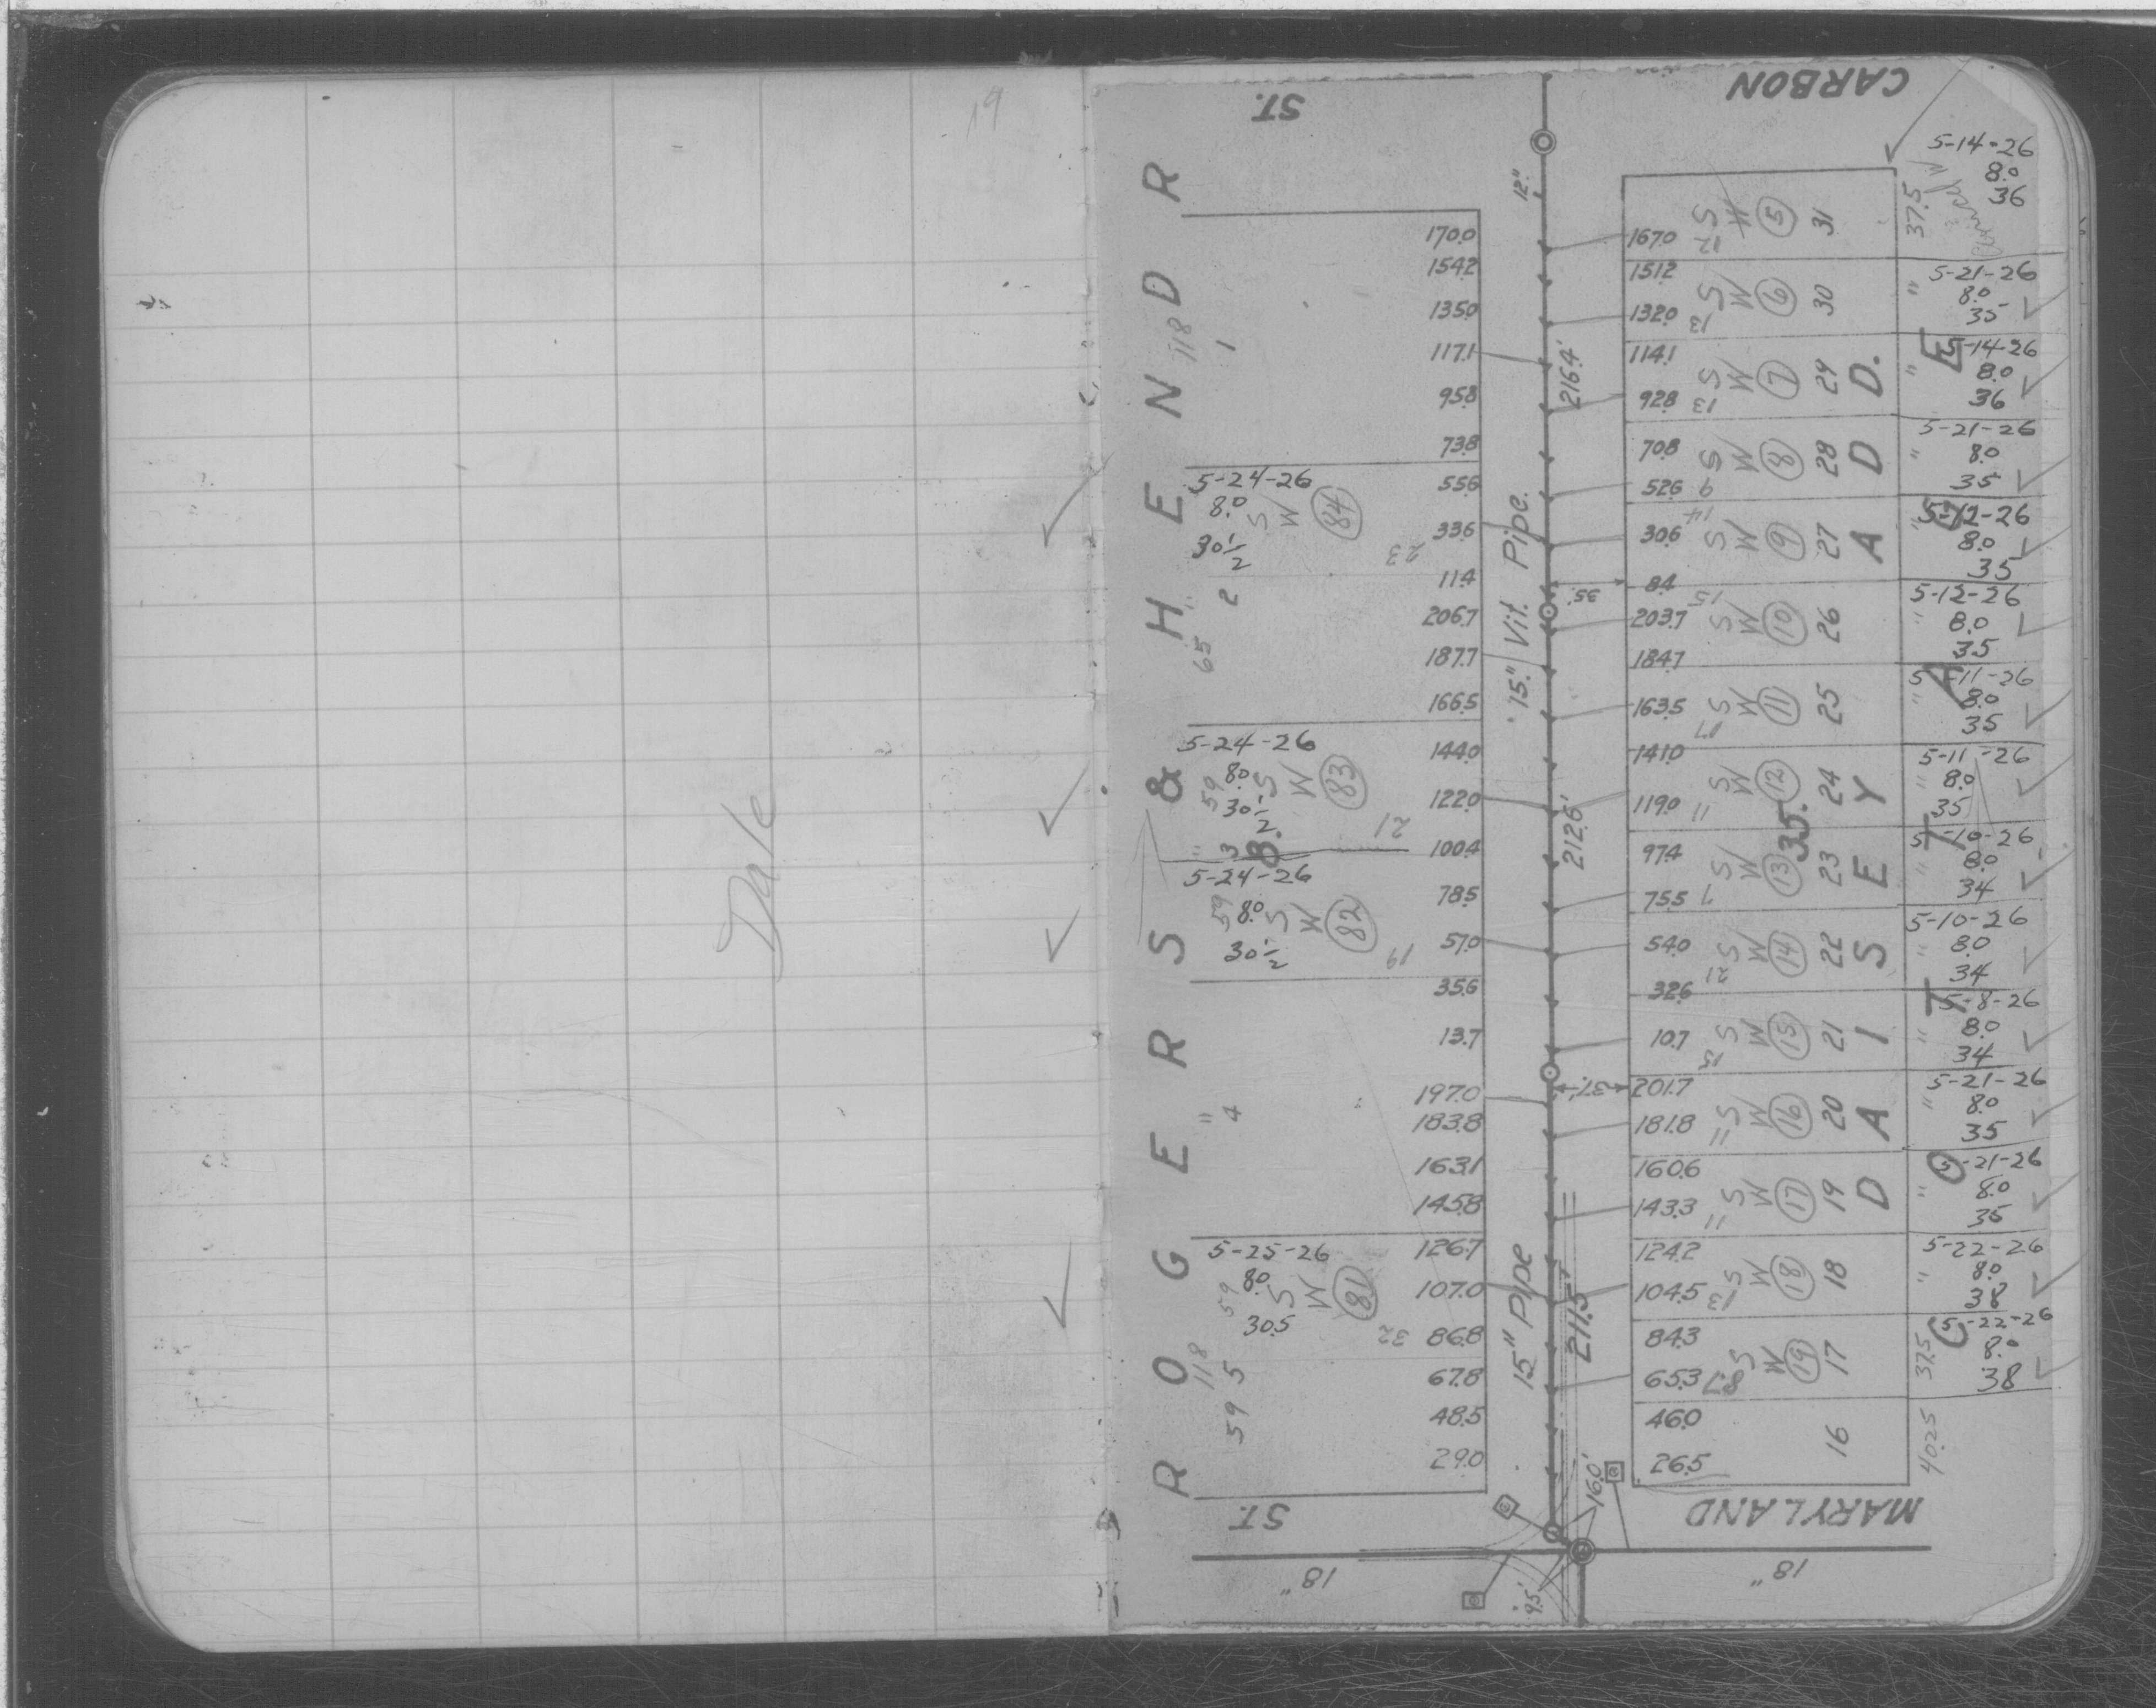 19
Dale
ST.
CARBON
ROGERS & HENDR
DAISEY ADD.
COTTAGE
12"
15" Vit. Pipe.
15" Pipe
216.4'
212.6'
211.5'
35'
37'
35.
8.
118
1
2
65
3
"
4
118
5
59
170.0
154.2
135.0
117.1
95.8
73.8
55.6
33.6
11.4
206.7
187.7
166.5
144.0
122.0
100.4
78.5
57.0
35.6
13.7
197.0
183.8
163.1
145.8
126.7
107.0
86.8
67.8
48.5
29.0
5-24-26
8.0
30 1/2
S
W
84
23
5-24-26
59
8.0
30 1/2
S
W
83
21
5-24-26
59
8.0
30 1/2
S
W
82
19
5-25-26
59
8.0
30.5
S
W
81
32
167.0
151.2
132.0
114.1
92.8
70.8
52.6
30.6
8.4
203.7
184.7
163.5
141.0
119.0
97.4
75.5
54.0
32.6
10.7
201.7
181.8
160.6
143.3
124.2
104.5
84.3
65.3
46.0
26.5
12 S W 5 31 37.5 5-14-26 8.0 36
13 S W 6 30 " 5-21-26 8.0 35
13 S W 7 29 " 5-14-26 8.0 36
9 S W 8 28 " 5-21-26 8.0 35
14 S W 9 27 " 5-12-26 8.0 35
15 S W 10 26 " 5-12-26 8.0 35
17 S W 11 25 " 5-11-26 8.0 35
11 S W 12 24 " 5-11-26 8.0 35
7 S W 13 23 " 5-10-26 8.0 34
21 S W 14 22 " 5-10-26 8.0 34
15 S W 15 21 " 5-8-26 8.0 34
11 S W 16 20 " 5-21-26 8.0 35
11 S W 17 19 " 5-21-26 8.0 35
13 S W 18 18 " 5-22-26 8.0 38
8.7 S W 19 17 37.5 5-22-26 8.0 38
16 40.25
16.0'
9.5'
ST.
MARYLAND
18"
18"